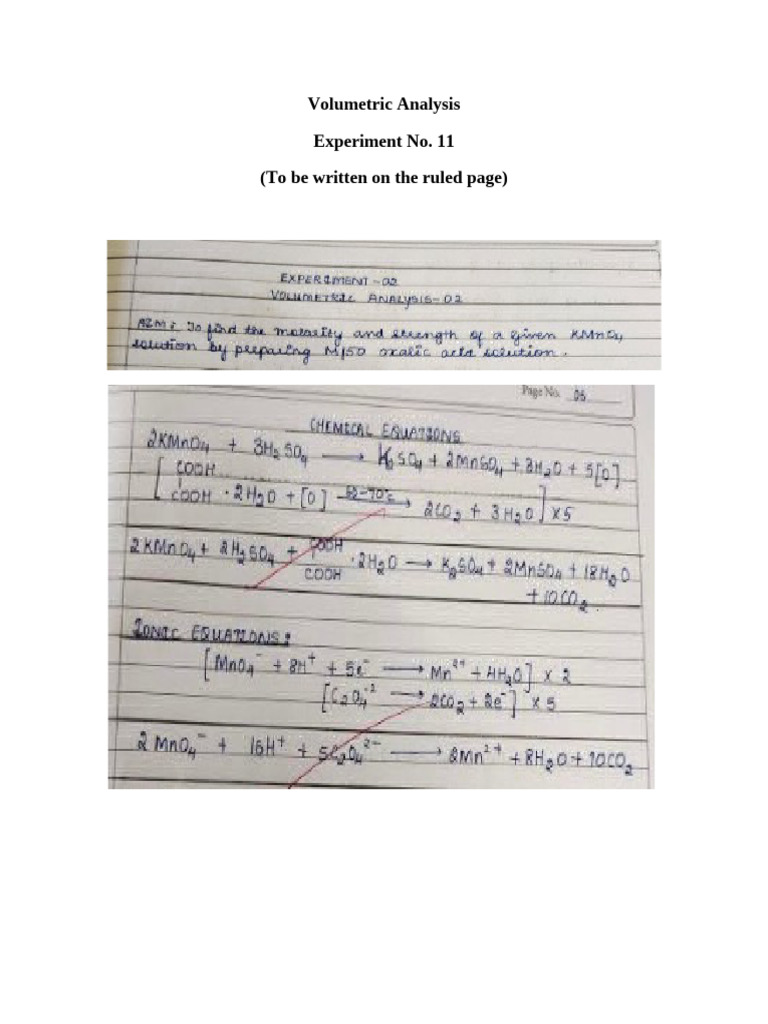 Volumetric Analysis
Experiment No. 11
(To be written on the ruled page)
EXPERIMENT-02
VOLUMETRIC ANALYSIS-02
AIM: To find the molarity and strength of a given KMnO₄
solution by preparing M/50 oxalic acid solution.
Page No. 06
CHEMICAL EQUATIONS
2KMnO₄ + 3H₂SO₄ ⟶ K₂SO₄ + 2MnSO₄ + 3H₂O + 5[O]
[COOH
COOH · 2H₂O + [O] ⟶ 2CO₂ + 3H₂O] × 5
2KMnO₄ + 2H₂SO₄ + COOH
COOH · 2H₂O ⟶ K₂SO₄ + 2MnSO₄ + 18H₂O
+ 10CO₂.
IONIC EQUATIONS:
[MnO₄⁻ + 8H⁺ + 5e⁻ ⟶ Mn²⁺ + 4H₂O] × 2
[C₂O₄⁻² ⟶ 2CO₂ + 2e⁻] × 5
2MnO₄⁻ + 16H⁺ + 5C₂O₄²⁻ ⟶ 2Mn²⁺ + 8H₂O + 10CO₂